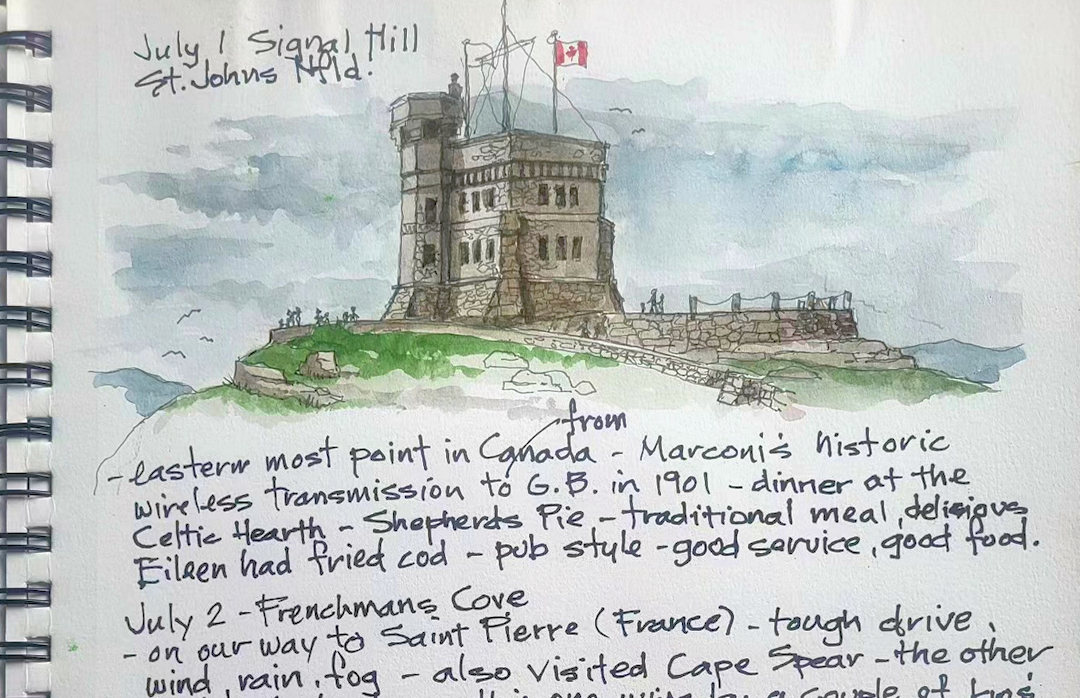 July 1 Signal Hill
St. Johns Nfld.
from
- eastern most point in Canada - Marconi's historic
wireless transmission to G.B. in 1901 - dinner at the
Celtic Hearth - Shepherds Pie - traditional meal, delicious
Eileen had fried cod - pub style - good service, good food.
July 2 - Frenchmans Cove
- on our way to Saint Pierre (France) - tough drive,
wind, rain, fog - also visited Cape Spear - the other
this one wins by a couple of